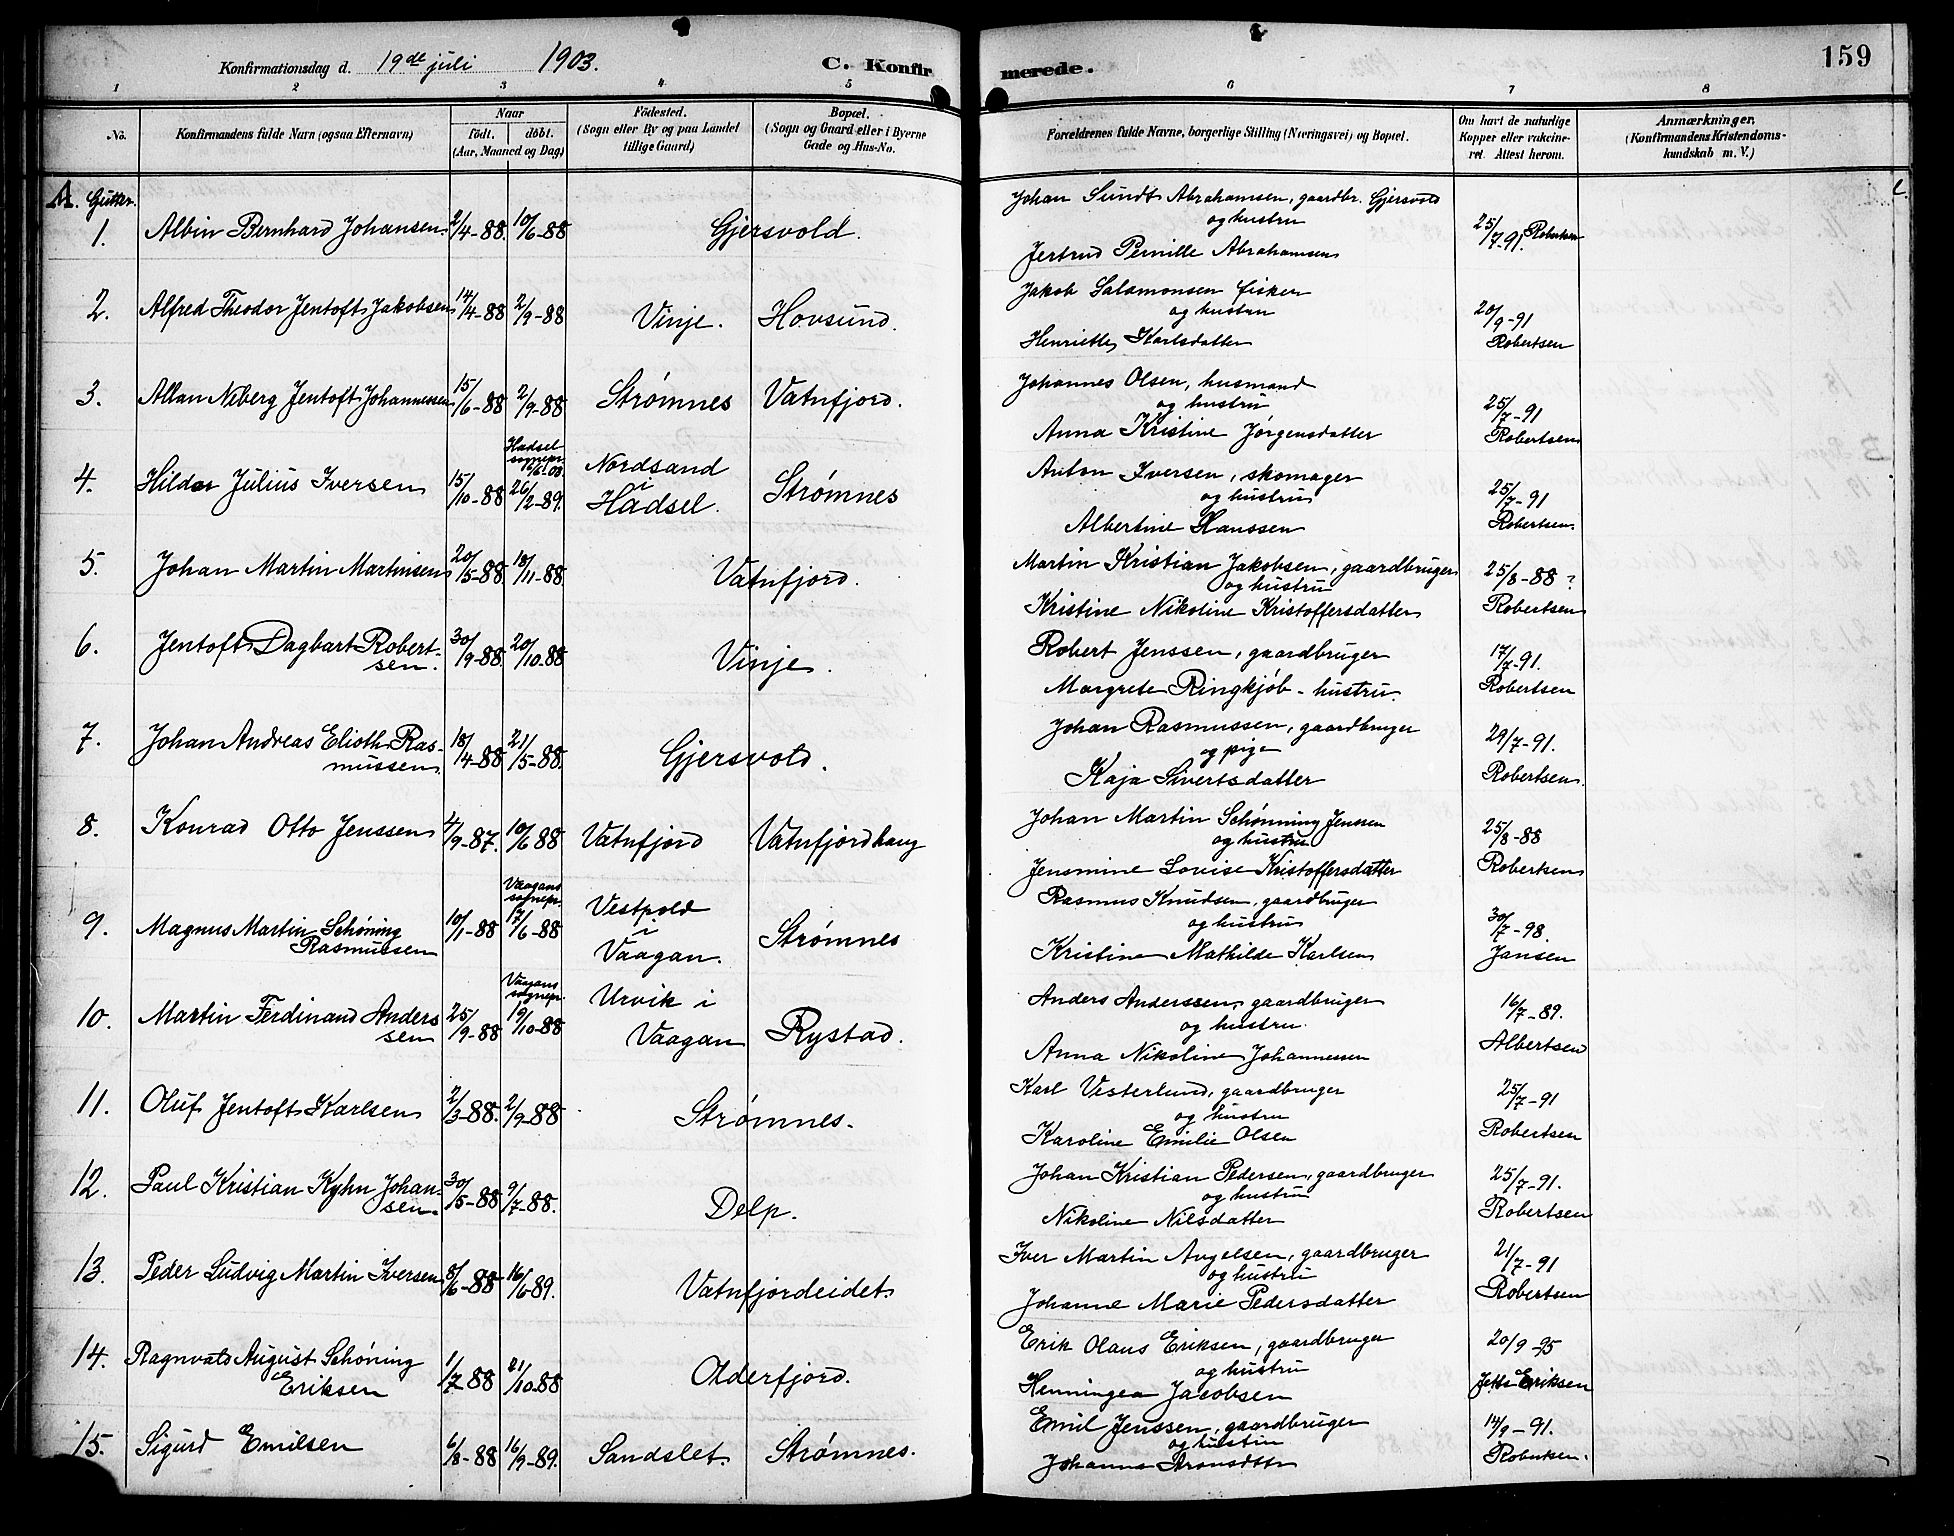 159
Konfirmationsdag d. 19de juli 1903. C. Konfirmerede.
1 2 3 4 5 6 7 8
No.
Konfirmandens fulde Navn (ogsaa Efternavn)
Naar
født. døbt.
(Aar, Maaned og Dag)
Födested.
(Sogn eller By og paa Landet
tillige Gaard)
Bopæl.
(Sogn og Gaard eller i Byerne
Gade og Hus-No.
Forældrenes fulde Navne, borgerlige Stilling (Næringsvei) og Bopæl.
Om havt de naturlige
Kopper eller vakcine-
ret. Attest herom.
Anmærkninger.
(Konfirmandens Kristendoms-
kundskab m. V.)
A. Gutter.
1. Albin Bernhard Johansen 2/4-88. 10/6-88 Gjersvold.
Johan Sundt Abrahamsen, gaardbr. Gjersvold
og hustru
Jertrud Pernille Abrahamsen
25/7-91. Robertsen
2. Alfred Theodor Jentoft Jakobsen 14/4-88 2/9-88 Vinje. Hovsund.
Jakob Salamonsen fisker
og hustru
Henriette Karlsdatter
20/9-91
Robertsen
3. Allan Neberg Jentoft Johannessen 15/6-88 2/9-88 Strømnes Vatnfjord.
Johannes Olsen, husmand
og hustru
Anna Kristine Jørgensdatter
25/7-91
Robertsen
4. Hildor Julius Iversen 15/10-88 Hadsel
sognepr.
16/6.03.
26/2-89. Nordsand
i
Hadsel. Strømnes
Anton Iversen, skomager
og hustru
Albertine Hanssen
25/7-91
Robertsen.
5. Johan Martin Martinsen 20/5-88 18/11-88 Vatnfjord.
Martin Kristian Jakobsen, gaardbruger
og hustru
Kristine Nikoline Kristoffersdatter
25/8-88 ?
Robertsen
6. Jentoft Dagbart Robert-
sen. 30/9-88 20/10.88 Vinje.
Robert Jenssen, gaardbruger
Margrete Ringkjøb - hustru.
17/7-91.
Robertsen
7. Johan Andreas Elioth Ras-
mussen. 18/4-88 21/5-88. Gjersvold.
Johan Rasmussen, gaardbruger
og pige
Kaja Sivertsdatter
29/7-91.
Robertsen.
8. Konrad Otto Jenssen 4/9-87. 10/6 88 Vatnfjord Vatnfjordhaug
Johan Martin Schønning Jenssen
og hustru
Jensmine Lovise Kristoffersdatter
25/8-88
Robertsen
9. Magnus Martin Schøning
Rasmussen 10/1-88 Vaagans
sognepr.
17/6-88 Vestpold
i
Vaagan. Strømnes
Rasmus Knudsen, gaardbruger
og hustru
Kristine Mathilde Karlsen
30/7-98.
Jansen
10. Martin Ferdinand Anders
sen 25/9-88 Vaagans
sognepr.
19/10-88 Urvik i
Vaagan Rystad.
Anders Anderssen, gaardbruger
og hustru.
Anna Nikoline Johannessen
16/7-89.
Albertsen
11. Oluf Jentoft Karlsen 2/3-88. 2/9-88 Strømnes.
Karl Vesterlund, gaardbruger
og hustru
Karoline Emilie Olsen
25/7-91
Robertsen
12. Paul Kristian Kyhn Johan-
sen. 30/5-88 9/7-88. Delp.
Johan Kristian Pedersen, gaardbruger
og hustru
Nikoline Nilsdatter
25/7-91.
Robertsen
13. Peder Ludvig Martin Iversen 8/6-88 16/6-89. Vatnfjordeidet.
Iver Martin Angelsen, gaardbruger
og hustru
Johanne Marie Pedersdatter
21/7-91
Robertsen
14. Ragnvald August Schöning
Eriksen 1/7-88 21/10-88 Olderfjord.
Erik Olaus Eriksen, gaardbruger
og hustru
Henningea Jacobsen
20/9-95
Jette Eriksen
15. Sigurd Emilsen 6/8-88 16/9-89. Sandslet. Strømnes.
Emil Jenssen, gaardbruger
og hustru
Johanna Aronsdttr
14/9-91.
Robertsen.